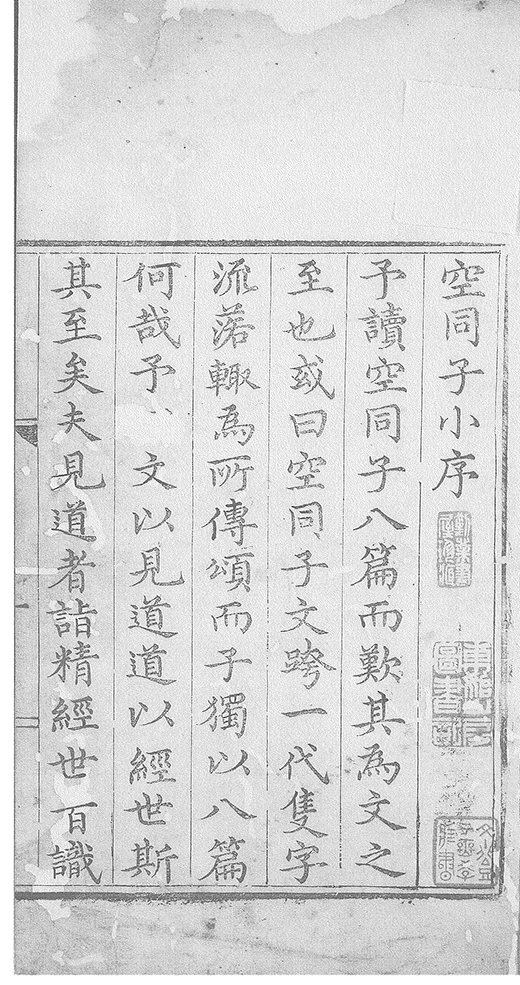 空同子小序
予讀空同子八篇而歎其為文之
至也或曰空同子文跨一代隻字
流落輙為所傳頌而子獨以八篇
何哉予文以見道道以經世斯
其至矣夫見道者詣精經世百識